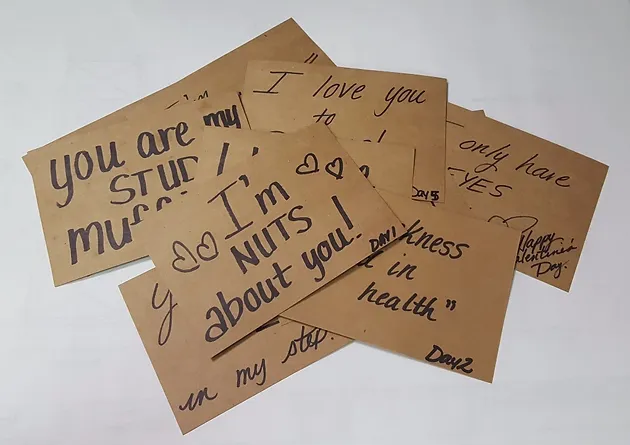 I'm
"
I love you
to
you are my
STUD
muff
I'm
NUTS
about you!
DAY 1
Day 5
I only have
-YES
Happy
Valentine's
Day.
kness
in
health"
Day 2
Y
in my step.